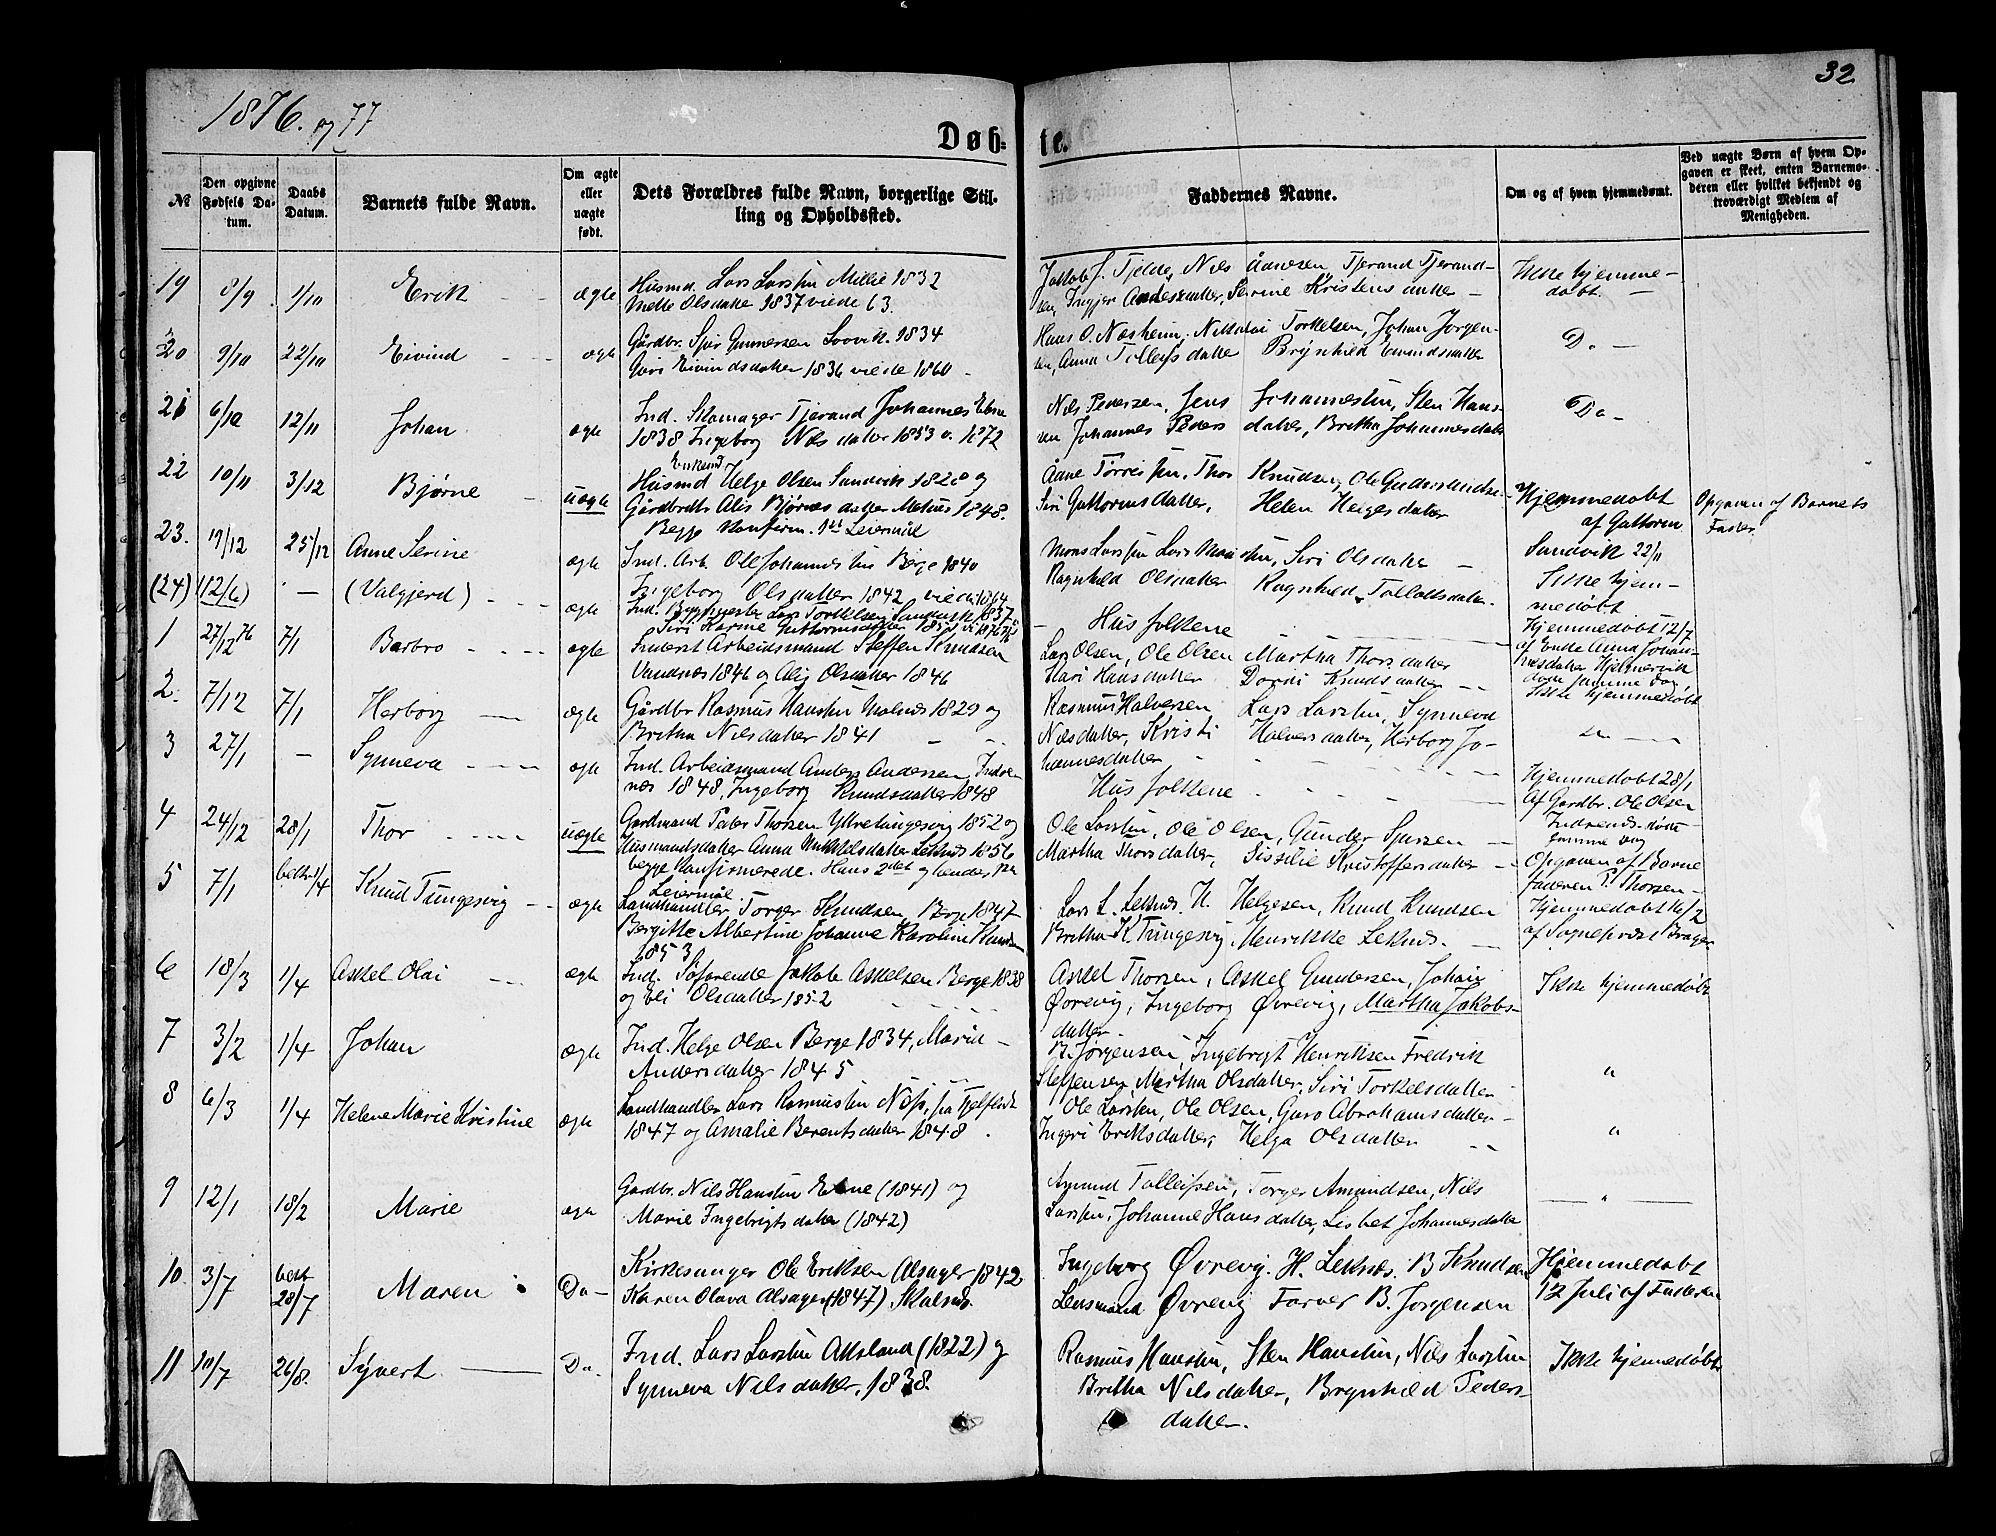 1876. og 77
32
Døb-
te.
№
Den opgivne Fødsels Datum.
Daabs Datum.
Barnets fulde Navn.
Om ægte eller uægte født.
Dets Forældres fulde Navn, borgerlige Stilling og Opholdssted.
Faddernes Navne.
Om og af hvem hjemmedøbt.
Ved uægte Børn af hvem Opgaven er skeet, enten Barnemoderen eller hvilket bekjendt og troværdigt Medlem af Menigheden.
19 8/9 1/10 Erik ægte Husmd. Lars Larssen 1832
Mette Olsdatter 1837 viede 63.
Nils Tjerand Tjerand-
sen, Serine Kristensdatter
Ikke hjemme-
døbt.
20 9/10 22/10 Eivind ægte Gårdbr. Gunnersen 1834
Guri Eivindsdatter 1836 viede 1860
Hans O. Næsheim, Nikolai Torkelsen, Johan Jørgen-
sen, Anna Tolleifsdatter Brynhild
Do
21 6/10 12/11 Johan ægte Ind. Skomager Tjerand Johannes
1838 Ingeborg Nilsdatter 1853 v. 1872
Nils Pedersen, Jens Johannessen, Sten Han-
sen Johannes Pedersdatter, Britha Johannesdatter
Do
22 10/11 3/12 Bjørne uægte Enkemd
Husmd Helge Olsen Sandvik 1820 og
Gårdbrdtr Alis Bjørnesdatter 1848.
Begge Konfirm. 1ste Leiermål
Åne Thor Knudsen, Ole
Siri Guttormsdatter, Helen Helgesdatter
Hjemmedøbt
af Guttorm
Sandvik 22/11
Opgaven af Barnets
Fader
23. 19/12 25/12 Anne Serine ægte Ind. Arb. Ole Johannessen Berge 1840
Ingeborg Olsdatter 1842 viede 1864
Mons Larssen Lars Siri Olsdatter
Ragnhild Olsdatter Ragnhild
Ikke hjem-
medøbt
(24) (12/6) — (Valgjerd) ægte Ind. Lars Torkelsen Sandvik 1837
Siri Karine Guttormsdatter
Husfolkene
Hjemmedøbt 12/7
af Enke Anna Johan-
nesdatter
døde samme Dag
1 27/12 76 7/1 Barbro ægte Inderst Arbeidsmand Steffen Knudsen
Vandnæs 1846 og Alis Olsdatter 1846
Lars Olsen, Ole Olsen Martha Thorsdatter
Kari Hansdatter Dorthi Knudsdatter
Ikke hjemmedøbt
2. 7/12 7/1 Herborg ægte Gårdbr Rasmus Hanssen Molnes 1829 og
Britha Nilsdatter 1841
Rasmus Halversen Lars Larssen, Synneva
Nilsdatter, Kristi Halversdatter, Herborg Jo-
hannesdatter
3 27/1 — Synneva ægte Ind. Arbeidsmand Anders Andersen Indre-
næs 1848, Ingeborg Knudsdatter 1848
Husfolkene
Hjemmedøbt 28/1
Af Gardbr. Ole Olsen
Indrenæs. døde
samme Dag
4 24/12 28/1 Thor uægte Gardmand Peter Thorsen Ytretungesvig 1852 og
Husmandsdatter Anna Mikkelsdatter Leknæs 1856
begge Konfirmerede. Hans 2det og hendes 1ste
Leiermål
Ole Larssen, Ole Olsen, Gunder Sjursen
Martha Thorsdatter, Sissilie Kristoffersdatter
Opgaven af Barne
faderen P. Thorsen
5 7/1 bekr. 1/4 Knud Tungesvig ægte Landhandler Torger Knudsen Berge 1847
Bergitte Albertine Johanne Karoline
1853
Lars L. Leknæs. H. Helgesen, Knud Knudsen
Britha K Tungesvig, Henrikke Leknæs.
Hjemmedøbt 16/2
af Sogneprest
6 18/3 1/4 Askel Olai ægte Ind. Søfarende Jakob Askelsen Berge 1838
og Eli Olsdatter 1852
Askel Thorsen, Askel Gundersen, Johan
Øvrevig, Ingeborg Øvrevig, Martha Jakobs-
datter
Ikke hjemmedøbt
7 3/2 1/4 Johan ægte Ind. Helge Olsen Berge 1834, Maria
Andersdatter 1845
B. Jørgensen, Ingebrigt Henriksen Fredrik
Steffensen Martha Olsdatter, Siri Torkelsdatter
"
8 6/3 1/4 Helene Marie Kristine ægte Landhandler Lars Rasmussen
1847 og Amalie Berentsdatter 1848.
Ole Larssen, Ole Olsen, Guro Abrahamsdatter
Ingeri Eriksdatter, Helga Olsdatter
"
9 12/1 18/2 Marie ægte Gardbr. Nils Hanssen Ebne (1841) og
Marie Ingebrigtsdatter (1842)
Amund Tolleifsen, Torger Amundsen, Nils
Larssen, Johanne Hansdatter, Lisbet Johannesdatter
— " —
10 3/7 bekr 28/7 Maren Do Kirkesanger Ole Eriksen Alsager 1842
Karen Olava Alsager (1847)
Ingeborg Øvrevig. H. Leknæs. B Knudsen
Lensmand Øvrevig Farver B. Jørgensen
Hjemmedøbt
12 Juli af Faderen
11 10/7 26/8. Syvert Do. Ind. Lars Larssen (1822) og
Synneva Nilsdatter, 1838.
Rasmus Hanssen, Sten Hanssen, Nils Larssen
Britha Nilsdatter, Brynhild Peders-
datter.
Ikke hjemmedøbt